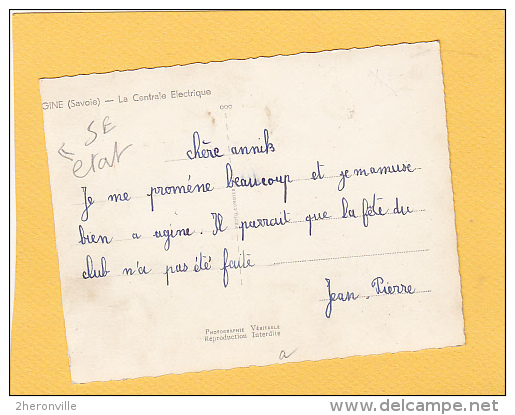 GINE (Savoie) — La Centrale Electrique
SE
etat
chère annik
Je me promène beaucoup et jemamuse
bien a agine. Il parrait que la fête du
club n'a pas été faite
Jean-Pierre
PHOTOGRAPHIE VÉRITABLE
Reproduction Interdite
a
2heronville
www.delcampe.net